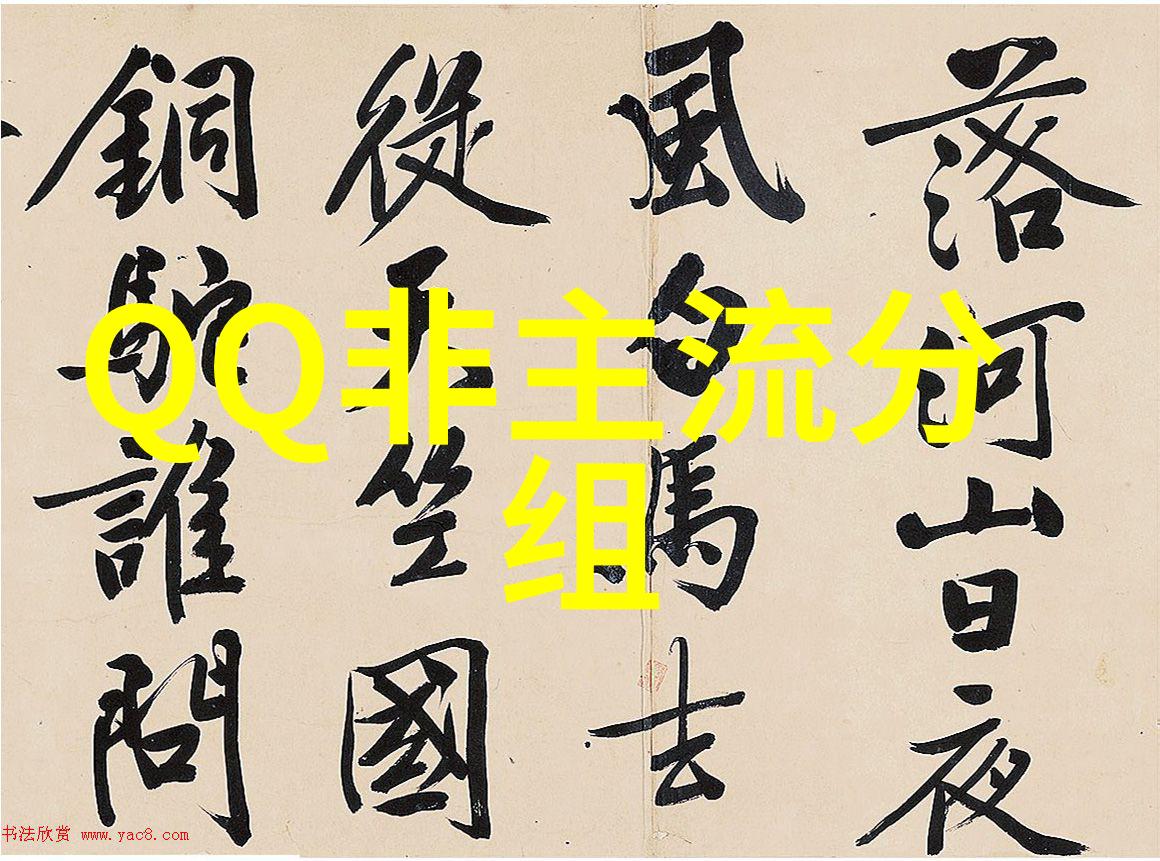 落河山日夜
風白馬去
從天竺國
銅駝誰問
QQ非主流分
组
书法欣赏 www.yac8.com